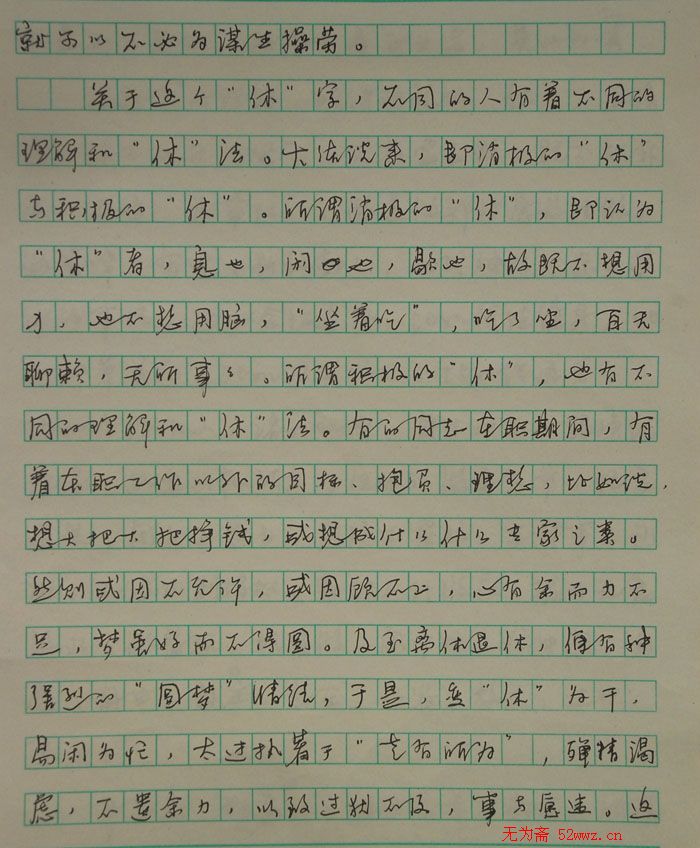 就可以不必为谋生操劳。
关于这个“休”字，不同的人有着不同的
理解和“休”法。大体说来，即消极的“休”
与积极的“休”。所谓消极的“休”，即认为
“休”者，息也，闲也，歇也，故既不想用
力，也不想用脑，“坐着吃”，吃了坐，百无
聊赖，无所事々。所谓积极的“休”，也有不
同的理解和“休”法。有的同志在职期间，有
着本职工作以外的目标、抱负、理想，比如说，
想大把大把挣钱，或想成什么什么专家之类。
然则或因不允许，或因顾不上，心有余而力不
足，梦虽好而不得圆。及至离休退休，便有种
强烈的“圆梦”情结，于是，变“休”为干，
易闲为忙，太过执着于“老有所为”，殚精竭
虑，不遗余力，以致过犹不及，事与愿违。这
无为斋 52wwz.cn